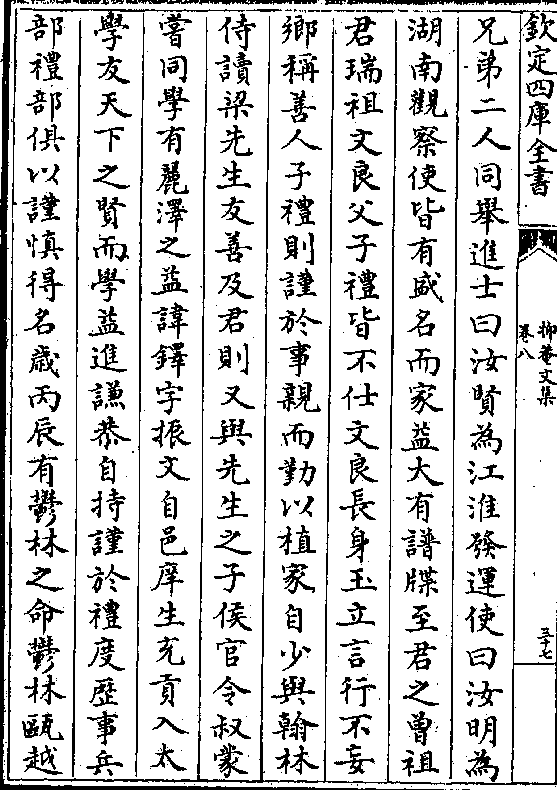 欽定四庫全書
抑菴文集
卷八
五十七
兄弟二人同舉進士曰汝賢為江淮發運使曰汝明為
湖南觀察使皆有盛名而家益大有譜牒至君之曾祖
君瑞祖文良父子禮皆不仕文良長身玉立言行不妄
鄉稱善人子禮則謹於事親而勤以植家自少與翰林
侍讀梁先生友善及君則又與先生之子侯官令叔蒙
嘗同學有麗澤之益諱鐸字振文自邑庠生充貢入太
學友天下之賢而學益進謙恭自持謹於禮度歷事兵
部禮部俱以謹慎得名歲丙辰有鬱林之命鬱林甌越